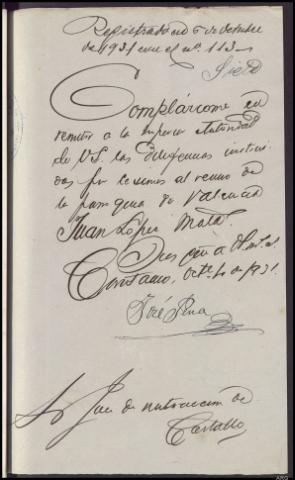 Registrado en 6 de Octubre
de 1931 con el nº. 113
Complázcome en
remitir a la superior Autoridad
de V.S. las diligencias instrui
das por lesiones al vecino de
la parroquia de
Juan López Mata.
Dios gûe a V. m. as
Coristanco, Octe. 6 de 1931.
José Pena
Sr Juez de instrucción de
Carballo